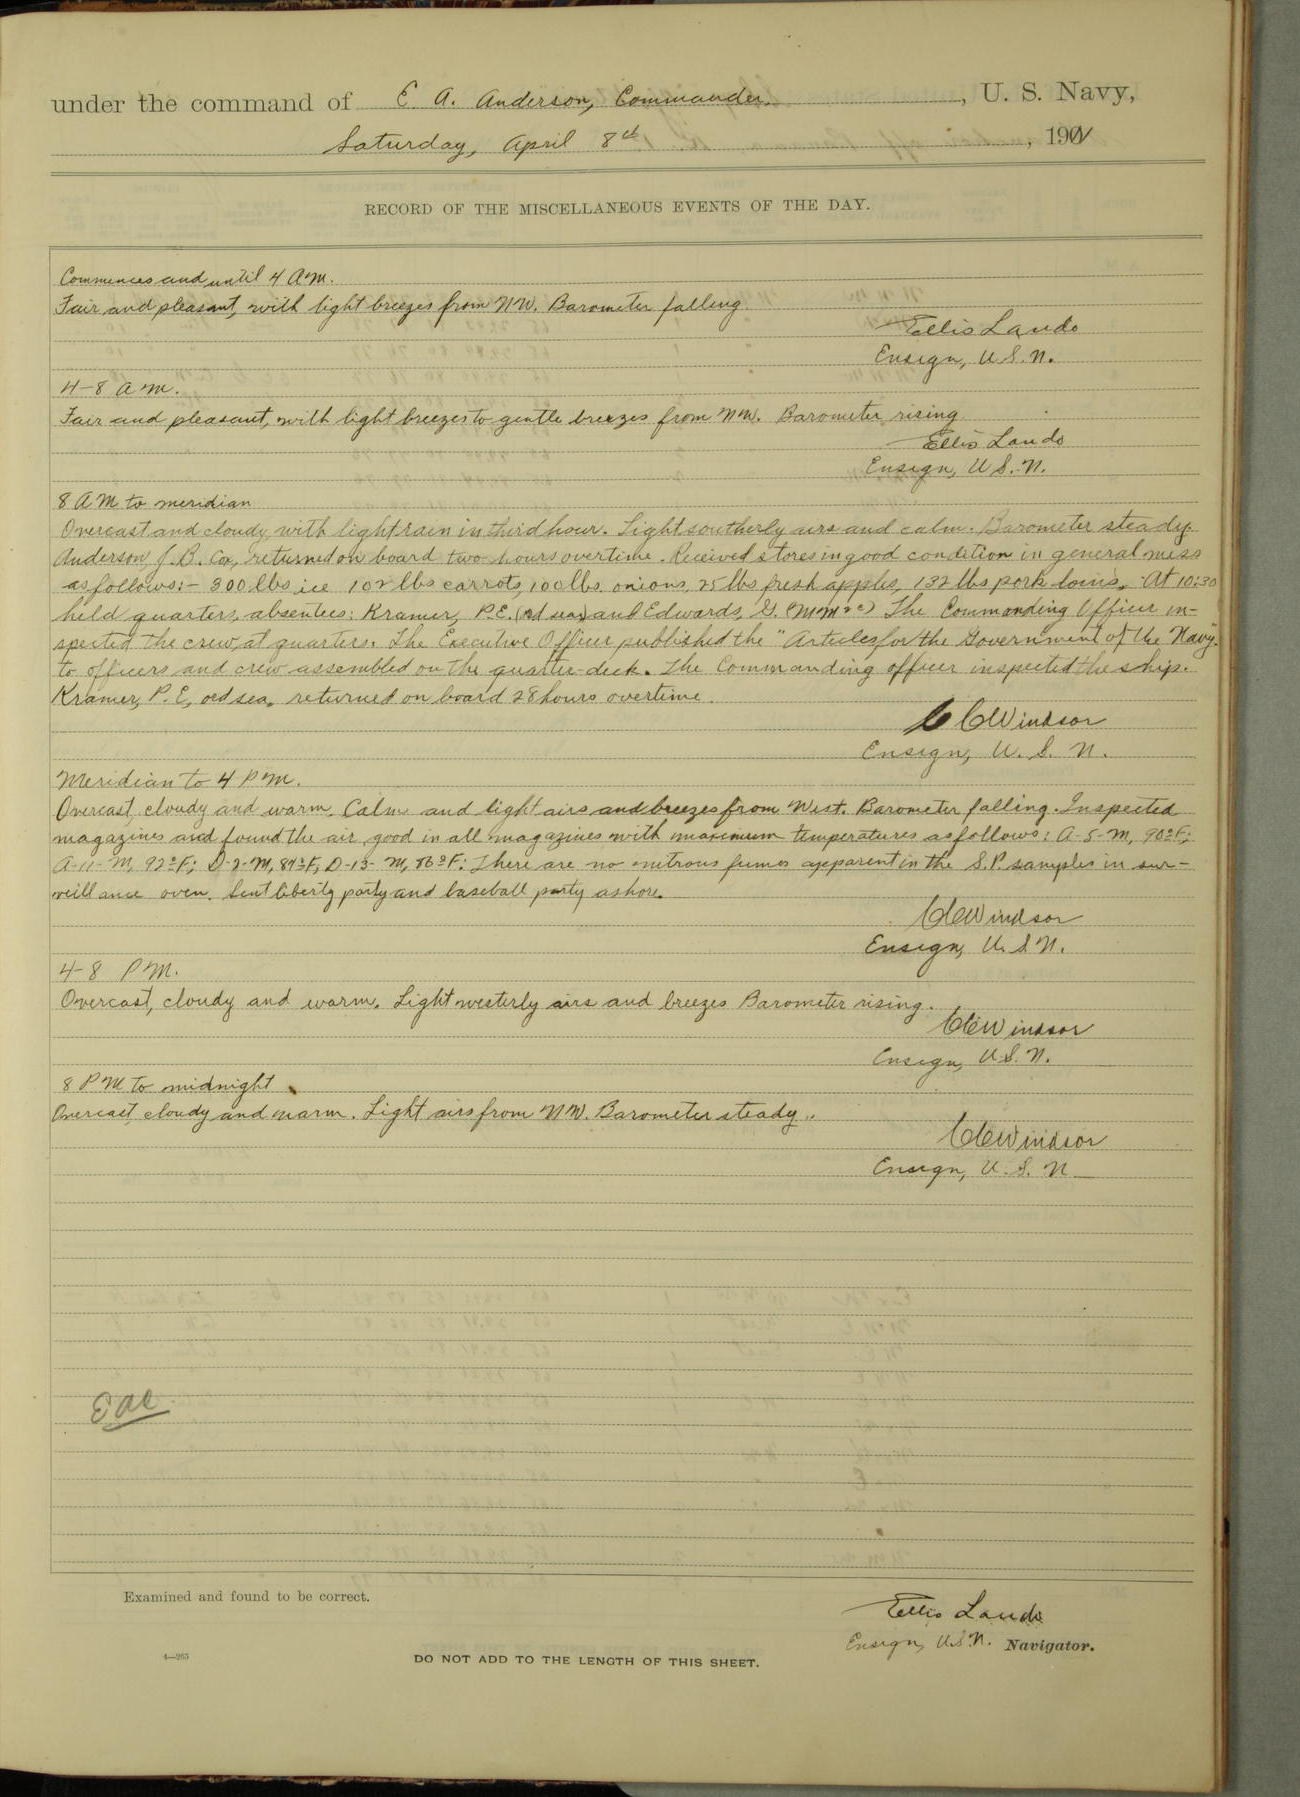 under the command of E. A. Anderson, Commander, U. S. Navy,
Saturday, April 8th, 191
RECORD OF THE MISCELLANEOUS EVENTS OF THE DAY.
Commences and until 4 A.M.
Fair and pleasant, with light breezes from NW. Barometer falling.
Ellis Lando
Ensign, U.S.N.
4-8 A.M.
Fair and pleasant, with light breezes to gentle breezes from NW. Barometer rising.
Ellis Lando
Ensign, U.S.N.
8 A.M. to meridian
Overcast and cloudy, with light rain in third hour. Light southerly airs and calm. Barometer steady.
Anderson, J. B. Cox, returned on board two hours overtime. Received stores in good condition in general mess
as follows:- 300 lbs ice 102 lbs carrots, 100 lbs. onions, 25 lbs fresh apples, 132 lbs pork loins. At 10:30
held quarters, absentees: Kramer, P.E. (Ord sea) and Edwards, G. (MM2c) The Commanding Officer in-
spected the crew at quarters. The Executive Officer published the "Articles for the Government of the Navy"
to officers and crew assembled on the quarter-deck. The Commanding officer inspected the ship.
Kramer, P.E, ord sea, returned on board 28 hours overtime.
C C Windsor
Ensign, U. S. N.
Meridian to 4 P.M.
Overcast, cloudy and warm. Calm and light airs and breezes from West. Barometer falling. Inspected
magazines and found the air good in all magazines with maximum temperatures as follows: A-5-M, 90°F;
A-11-M, 92°F; D-2-M, 87°F, D-13-M, 86°F: There are no nitrous fumes apparent in the S.P. samples in sur-
veillance oven. Sent liberty party and baseball party ashore.
C C Windsor
Ensign, U.S.N.
4-8 P.M.
Overcast, cloudy and warm. Light westerly airs and breezes Barometer rising.
C C Windsor
Ensign, U.S.N.
8 P.M. to midnight
Overcast, cloudy and warm. Light airs from NW. Barometer steady.
C C Windsor
Ensign, U. S. N
Examined and found to be correct.
Ellis Lando
Ensign, U.S.N. Navigator.
4—265
DO NOT ADD TO THE LENGTH OF THIS SHEET.